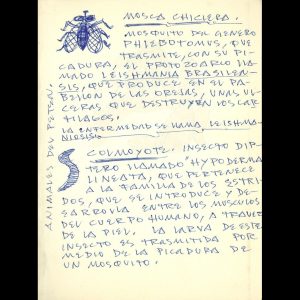 MOSCA CHICLERA.
MOSQUITO DEL GENERO
PHLEBOTOMUS, QUE
TRASMITE, CON SU PI-
CADURA, EL PROTOZOARIO LLA-
MADO LEISHMANIA BRASILEN-
SIS, QUE PRODUCE EN EL PA-
BELLON DE LAS OREJAS, UNAS UL-
CERAS QUE DESTRUYEN LOS CAR-
TILAGOS.
LA ENFERMEDAD SE LLAMA, LEISHMA-
NIOSIS.
COLMOYOTE. INSECTO DIP-
TERO LLAMADO "HYPODERMA
LINEATA, QUE PERTENECE
A LA FAMILIA DE LOS ESTRI-
DOS, QUE SE INTRODUCE Y DE-
SARROLLA ENTRE LOS MUSCULOS
DEL CUERPO HUMANO, A TRAVEZ
DE LA PIEL. LA LARVA DE ESTE
INSECTO ES TRASMITIDA POR
MEDIO DE LA PICADURA DE
UN MOSQUITO.
ANIMALES DEL PETEN.